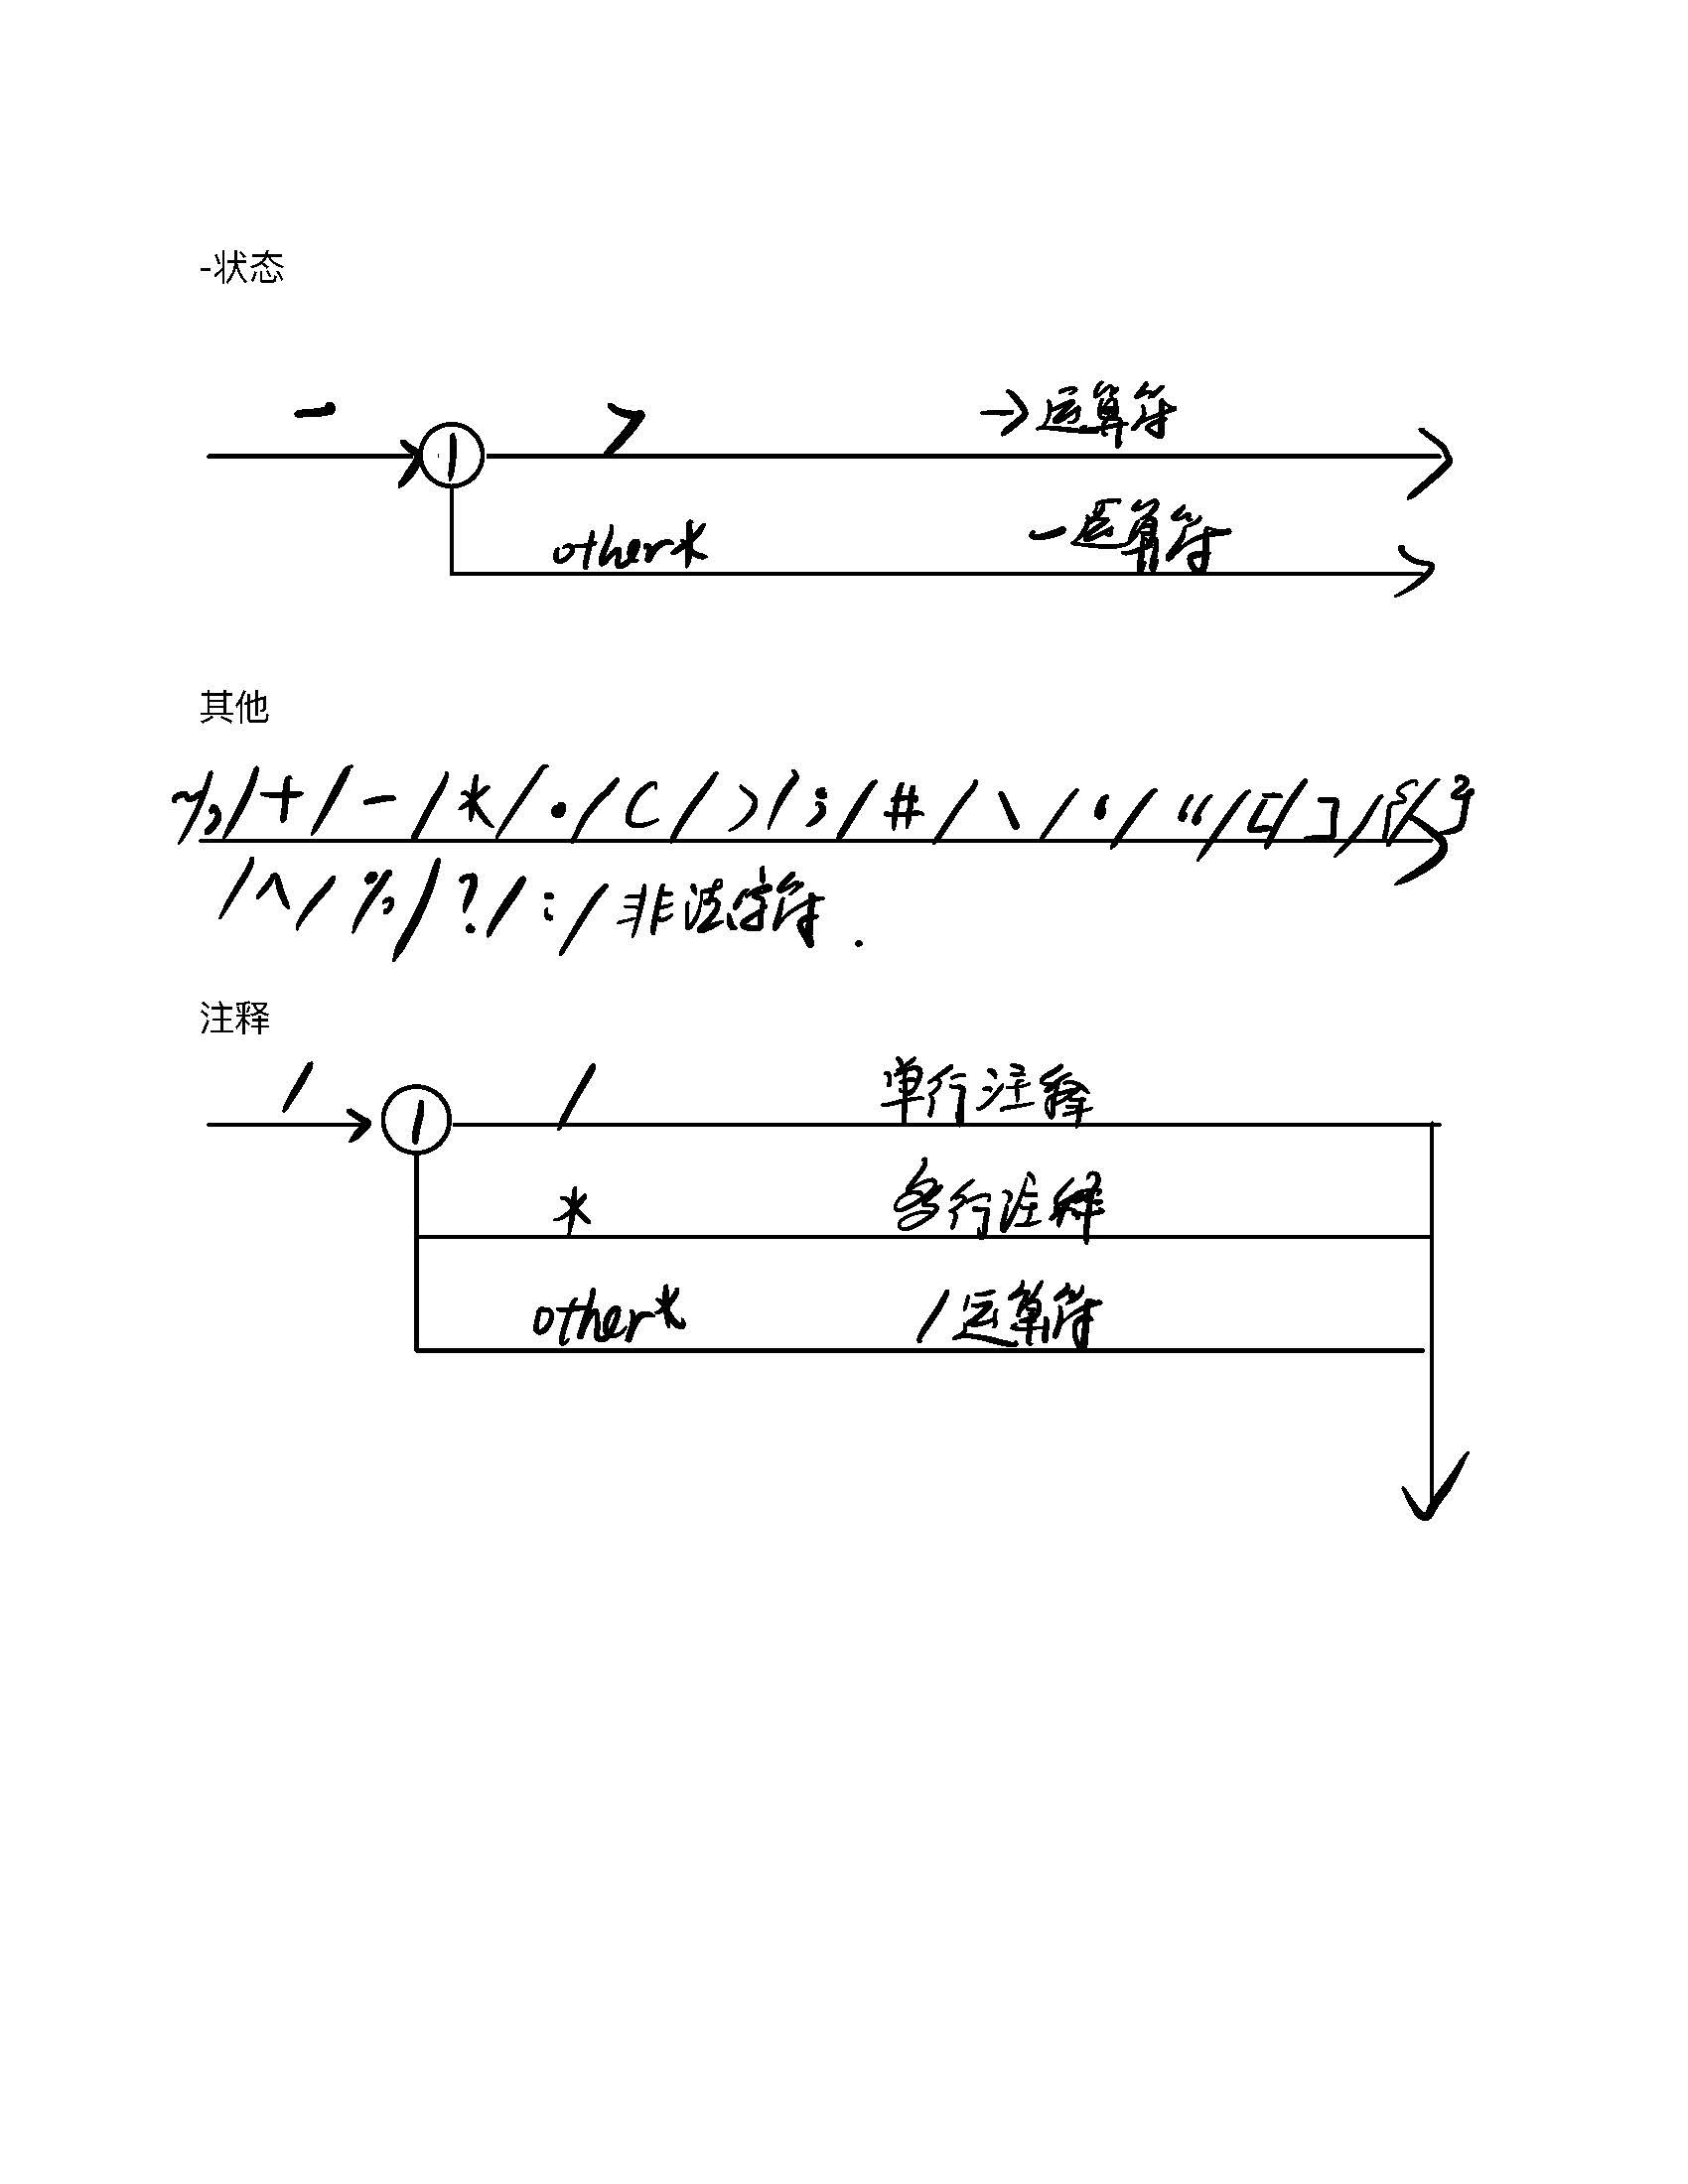 -状态
- > ->运算符
1
other* -运算符
其他
~/,/+/-/*/./(/)/;/#/\/‘/“/[/]/{/}
/^/%/?/:/非法字符.
注释
/ / 单行注释
1
* 多行注释
other* /运算符